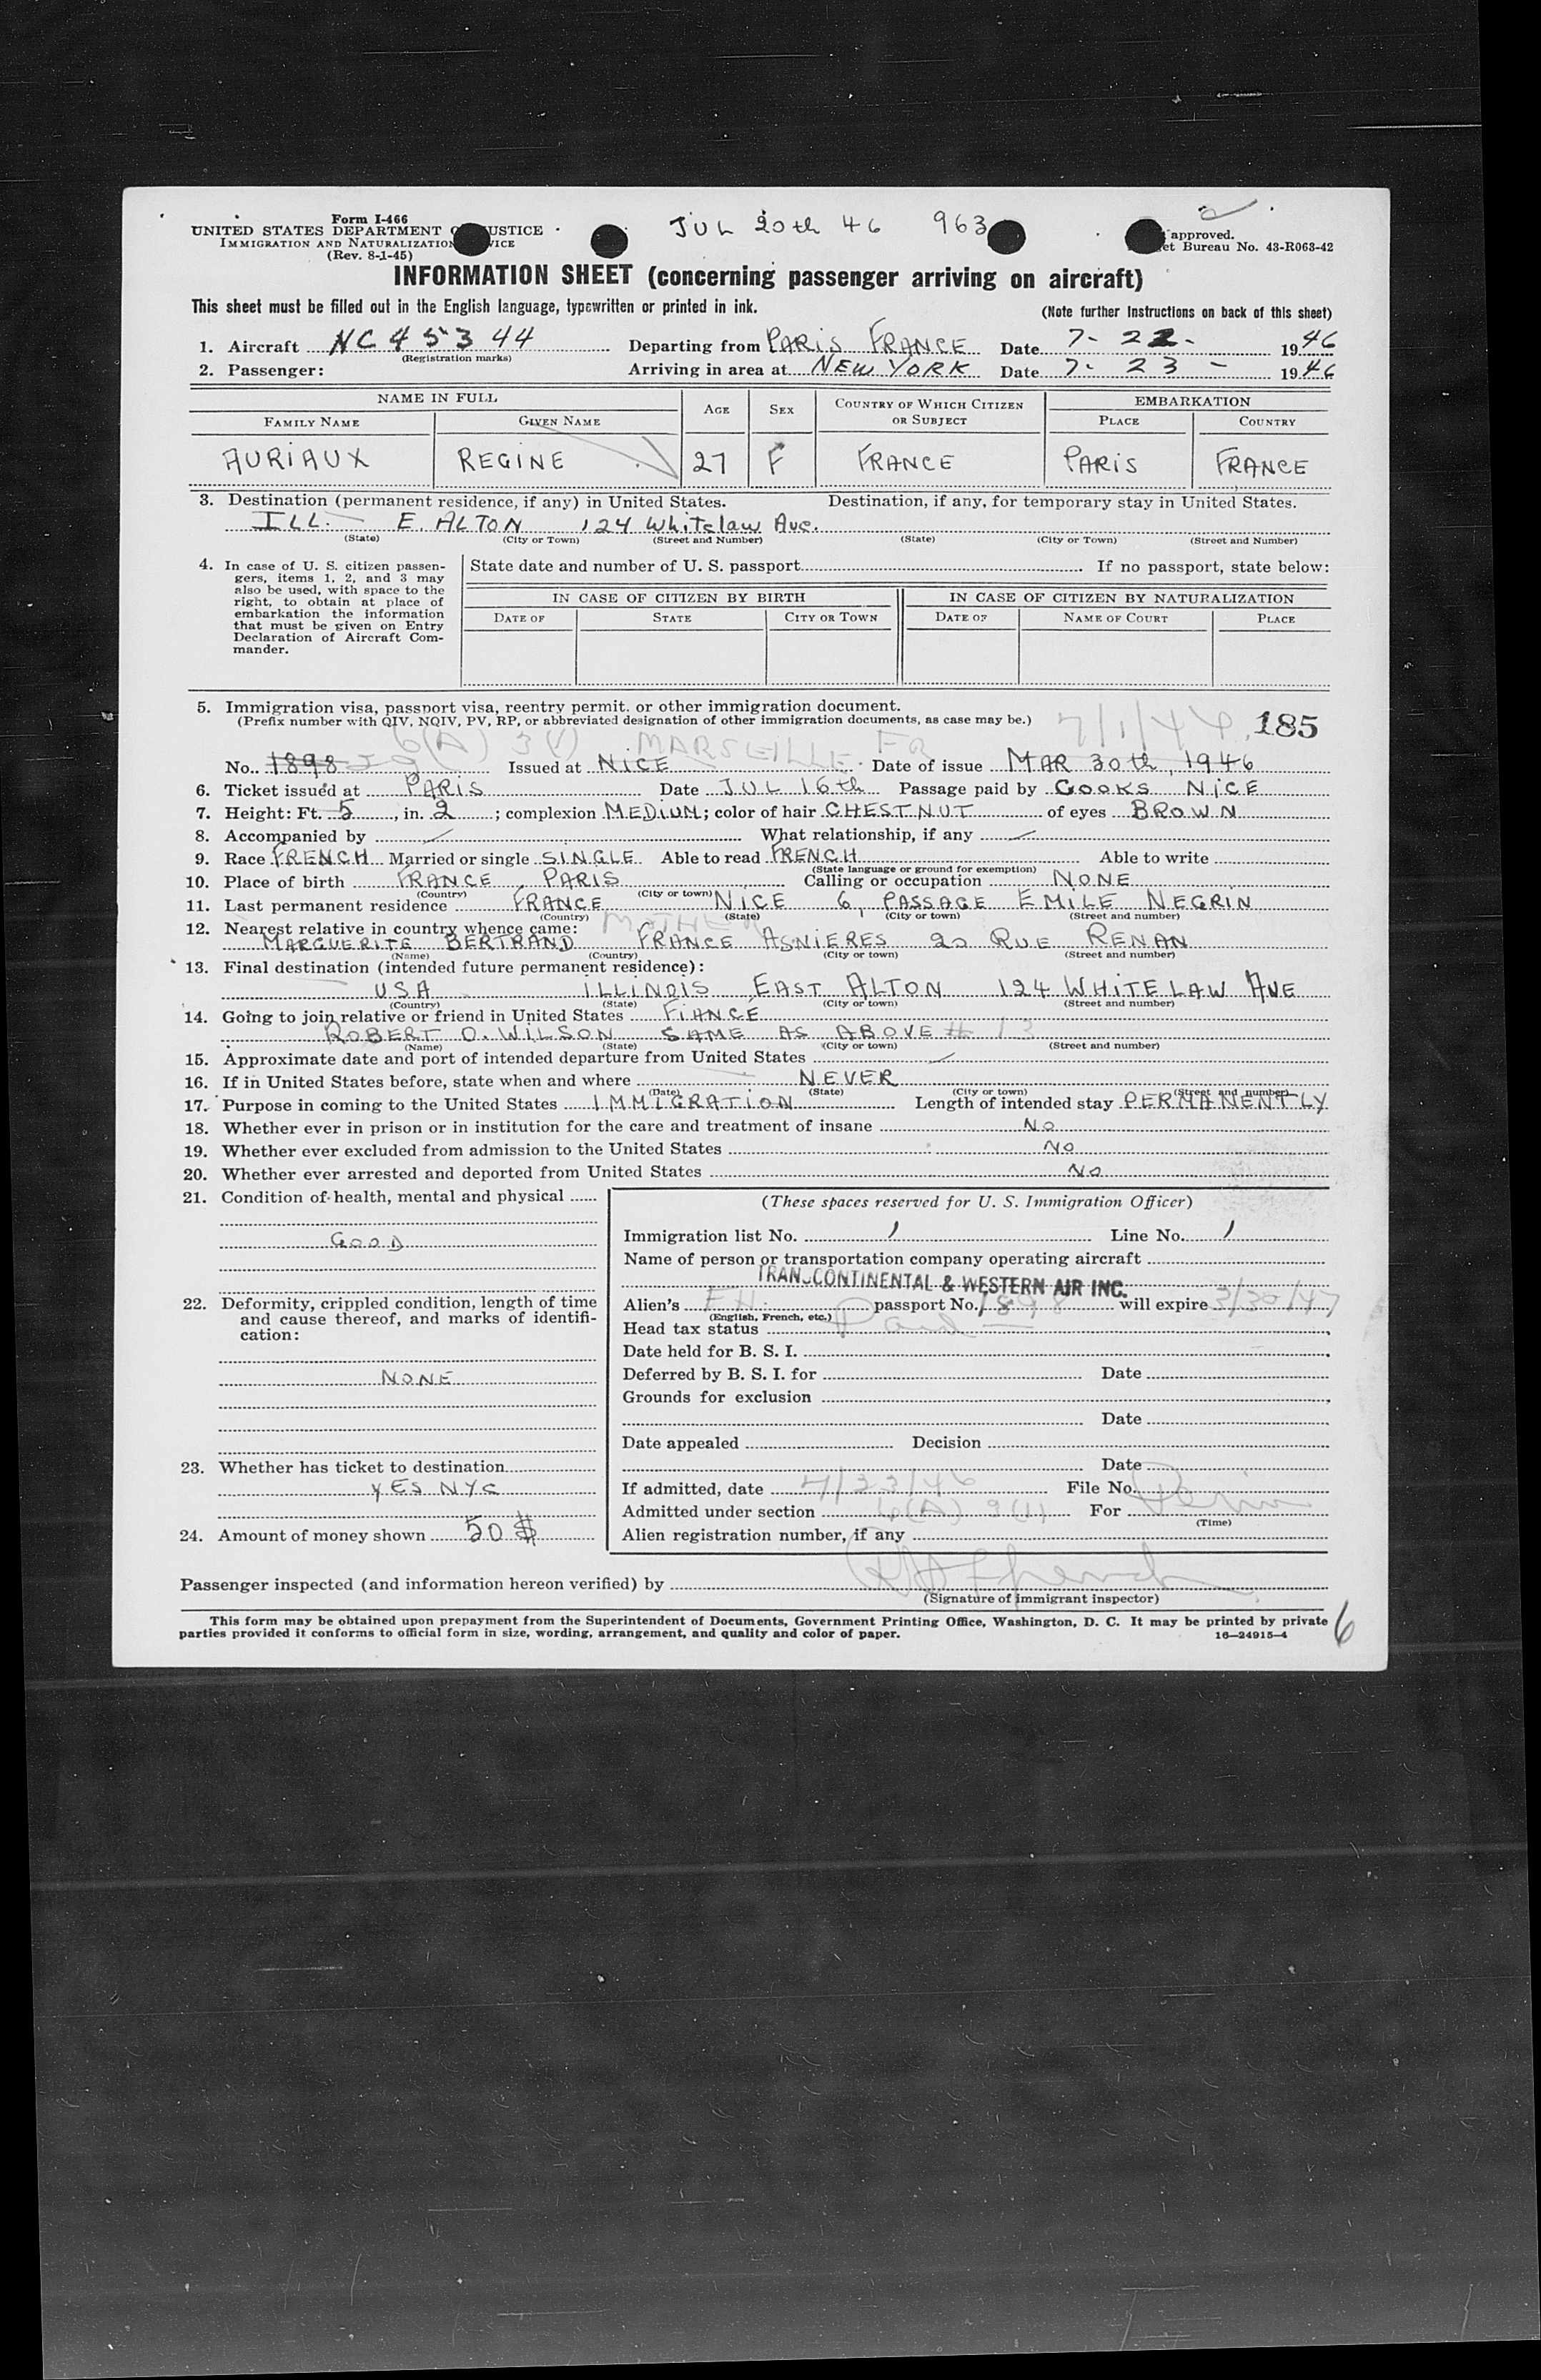 Form I-466
UNITED STATES DEPARTMENT USTICE
IMMIGRATION AND NATURALIZATION VICE
(Rev. 8-1-45)
JUL 20th 46 963
approved.
et Bureau No. 43-R063-42
INFORMATION SHEET (concerning passenger arriving on aircraft)
This sheet must be filled out in the English language, typewritten or printed in ink. (Note further Instructions on back of this sheet)
1. Aircraft NC 45344 Departing from PARIS FRANCE Date 7-22- 1946
(Registration marks)
2. Passenger: Arriving in area at NEW YORK Date 7-23- 1946
NAME IN FULL AGE SEX COUNTRY OF WHICH CITIZEN OR SUBJECT EMBARKATION
FAMILY NAME GIVEN NAME PLACE COUNTRY
AURIAUX REGINE 27 F FRANCE PARIS FRANCE
3. Destination (permanent residence, if any) in United States. Destination, if any, for temporary stay in United States.
ILL. E. ALTON 124 Whitelaw Ave.
(State) (City or Town) (Street and Number) (State) (City or Town) (Street and Number)
4. In case of U. S. citizen passen-
gers, items 1, 2, and 3 may
also be used, with space to the
right, to obtain at place of
embarkation the information
that must be given on Entry
Declaration of Aircraft Com-
mander.
State date and number of U. S. passport If no passport, state below:
IN CASE OF CITIZEN BY BIRTH IN CASE OF CITIZEN BY NATURALIZATION
DATE OF STATE CITY OR TOWN DATE OF NAME OF COURT PLACE
5. Immigration visa, passport visa, reentry permit. or other immigration document.
(Prefix number with QIV, NQIV, PV, RP, or abbreviated designation of other immigration documents, as case may be.)
7/1/46 185
6(A) 3(1) MARSEILLE FR
No. 1898 Issued at NICE Date of issue MAR 30th, 1946
6. Ticket issued at PARIS Date JUL 16th Passage paid by COOKS NICE
7. Height: Ft. 5, in. 2; complexion MEDIUM; color of hair CHESTNUT of eyes BROWN
8. Accompanied by What relationship, if any
9. Race FRENCH Married or single SINGLE Able to read FRENCH Able to write
(State language or ground for exemption)
10. Place of birth FRANCE PARIS Calling or occupation NONE
(Country) (City or town)
11. Last permanent residence FRANCE NICE 6, PASSAGE EMILE NEGRIN
(Country) (State) (City or town) (Street and number)
12. Nearest relative in country whence came: MOTHER
MARGUERITE BERTRAND FRANCE ASNIERES 20 RUE RENAN
(Name) (Country) (City or town) (Street and number)
13. Final destination (intended future permanent residence):
USA ILLINOIS EAST ALTON 124 WHITELAW AVE
(Country) (State) (City or town) (Street and number)
14. Going to join relative or friend in United States FIANCÉ
ROBERT O. WILSON SAME AS ABOVE # 13
(Name) (State) (City or town) (Street and number)
15. Approximate date and port of intended departure from United States
16. If in United States before, state when and where NEVER
(Date) (State) (City or town) (Street and number)
17. Purpose in coming to the United States IMMIGRATION Length of intended stay PERMANENTLY
18. Whether ever in prison or in institution for the care and treatment of insane NO
19. Whether ever excluded from admission to the United States NO
20. Whether ever arrested and deported from United States NO
21. Condition of health, mental and physical
GOOD
22. Deformity, crippled condition, length of time
and cause thereof, and marks of identifi-
cation:
NONE
23. Whether has ticket to destination
YES NYC
24. Amount of money shown 50 $
(These spaces reserved for U. S. Immigration Officer)
Immigration list No. 1 Line No. 1
Name of person or transportation company operating aircraft
TRANSCONTINENTAL & WESTERN AIR INC.
Alien's passport No. 1898 will expire 3/30/47
(English, French, etc.)
Head tax status Paid
Date held for B. S. I.
Deferred by B. S. I. for Date
Grounds for exclusion
Date
Date appealed Decision
Date
If admitted, date 7/23/46 File No.
Admitted under section 6(A) 3(1) For Perm
(Time)
Alien registration number, if any
Passenger inspected (and information hereon verified) by
(Signature of immigrant inspector)
This form may be obtained upon prepayment from the Superintendent of Documents, Government Printing Office, Washington, D. C. It may be printed by private
parties provided it conforms to official form in size, wording, arrangement, and quality and color of paper. 16—24915-4
6